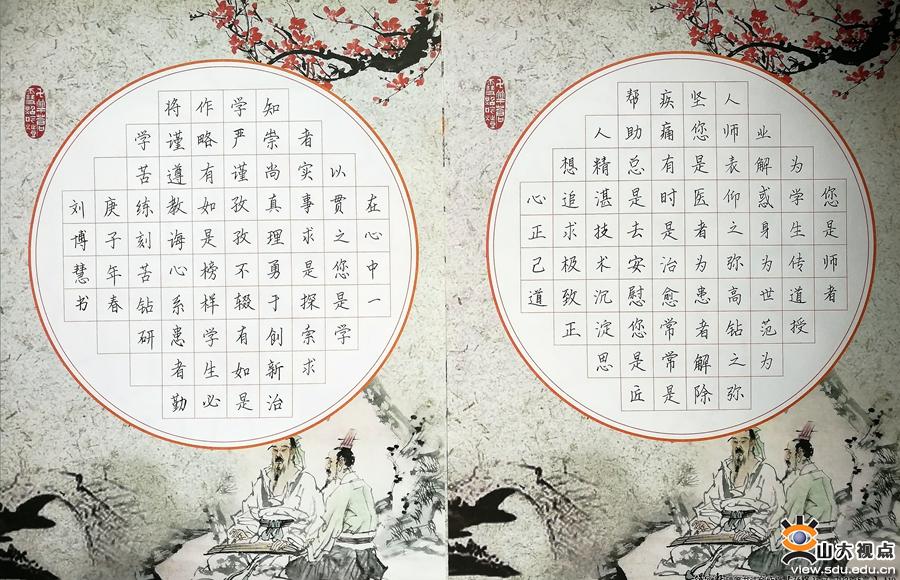 您是师者
为学生传道授
业解惑身为世范为
人师表仰之弥高钻之弥
坚您是医者为患者解除
疾痛有时是治愈常常是
帮助总是去安慰您是匠
人精湛技术沉淀思
想追求极致正
心正己道
在心中一
以贯之您是学
者实事求是探索求
知崇尚真理勇于创新治
学严谨孜孜不辍有如是
作略有如是榜样学生必
将谨遵教诲心系患者勤
学苦练刻苦钻研
庚子年春
刘博慧书
山大视点
view.sdu.edu.cn